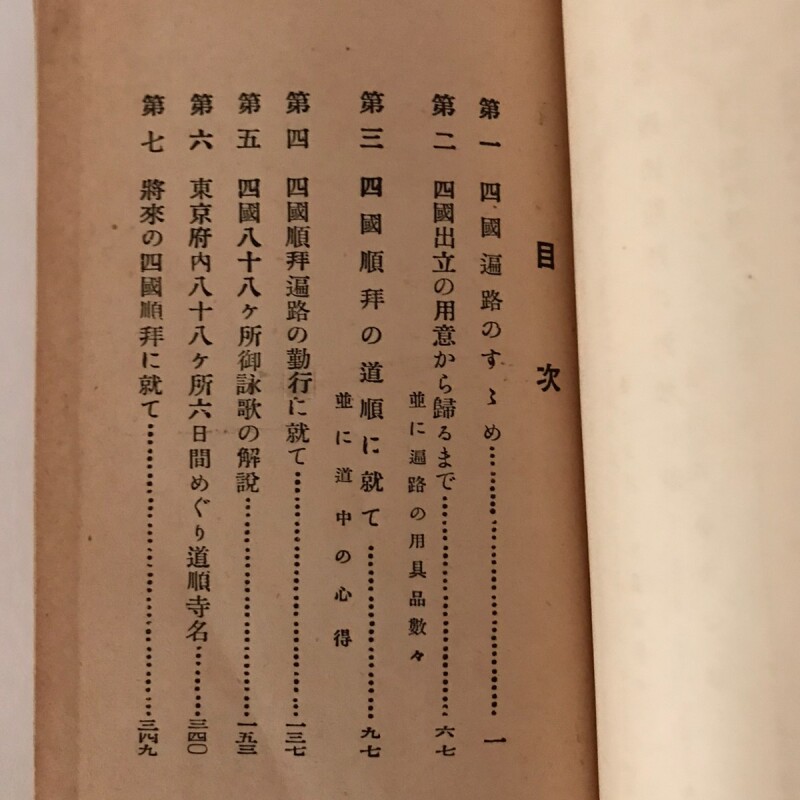 目次
第一 四國遍路のすゝめ……………………一
第二 四國出立の用意から歸るまで……………………六七
並に遍路の用具品數々
第三 四國順拜の道順に就て……………………九七
並に道中の心得
第四 四國順拜遍路の勤行に就て……………………一三七
第五 四國八十八ヶ所御詠歌の解說……………………一五三
第六 東京府內八十八ヶ所六日間めぐり道順寺名…………三四〇
第七 將來の四國順拜に就て……………………三四九